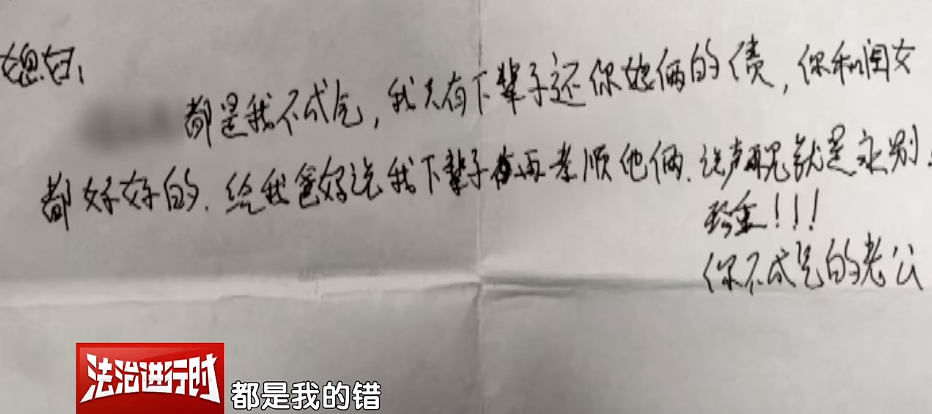 媳妇:
都是我不成气,我只有下辈子还你娘俩的债,你和闺女
都好好的.给我爸妈说我下辈子再孝顺他俩.说声再见就是永别.
珍重!!!
你不成气的老公
法治进行时
都是我的错